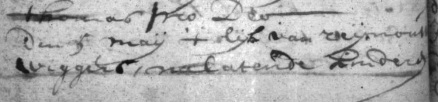 thomas pro Deo
Den 5 may + lijk van reijmont
wiggers, nalatende kinders